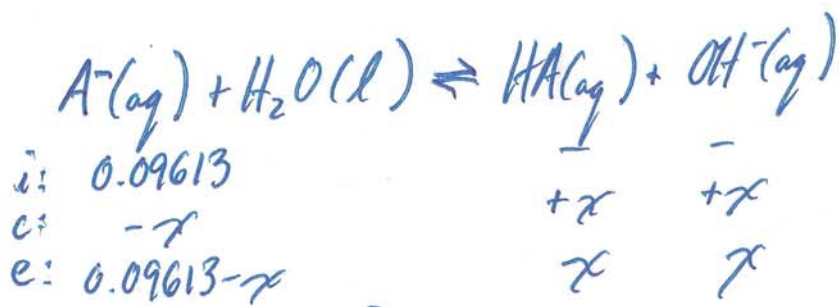 A⁻(aq) + H₂O(l) ⇌ HA(aq) + OH⁻(aq)
i: 0.09613 - -
c: -x +x +x
e: 0.09613-x x x